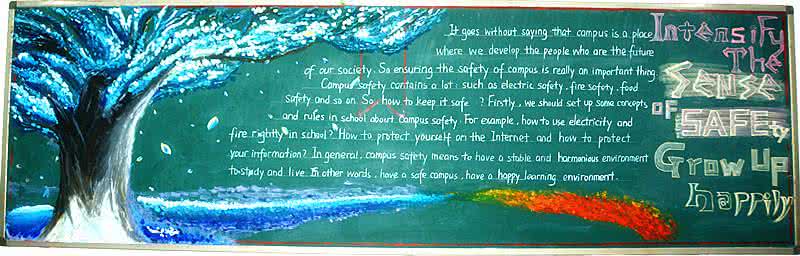 It goes without saying that campus is a place
where we develop the people who are the future
of our society. So ensuring the safety of campus is really an important thing.
Campus safety contains a lot: such as electric safety, fire safety, food
safety and so on. So, how to keep it safe ? Firstly, we should set up some concepts
and rules in school about campus safety. For example, how to use electricity and
fire rightly in school? How to protect yourself on the Internet and how to protect
your information? In general, campus safety means to have a stable and harmonious environment
to study and live. In other words, have a safe campus, have a happy learning environment.
Intensify
The
SENSE
OF SAFEty
Grow Up
happily